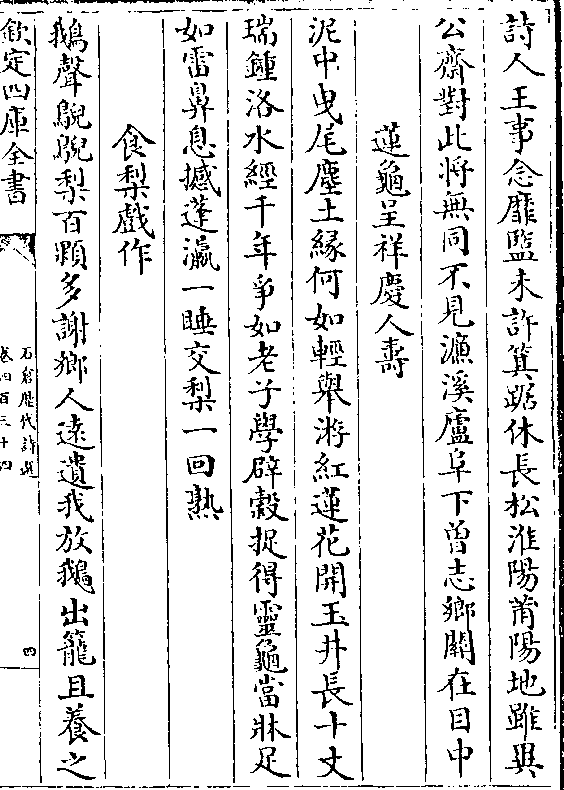 詩人王事念靡盬未許箕踞休長松淮陽莆陽地雖異
公齋對此將無同不見濂溪廬阜下曾志鄉關在目中
蓮龜呈祥慶人夀
泥中曳尾塵土緣何如輕舉游紅蓮花開玉井長十丈
瑞鍾洛水經千年爭如老子學辟穀捉得靈龜當牀足
如雷鼻息撼蓬瀛一睡交梨一回熟
食梨戲作
鵝聲鶃鶃梨百顆多謝鄉人遠遺我放鵝出籠且養之
欽定四庫全書
石倉歷代詩選
卷四百三十四
四